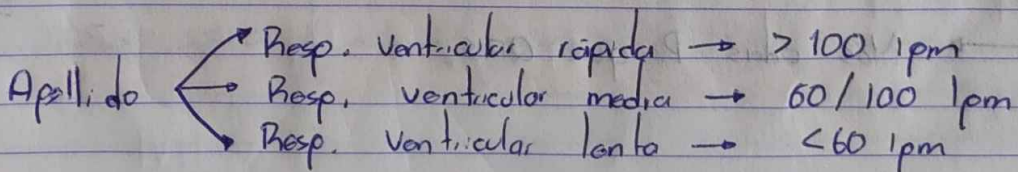 Resp. ventricular rápida → > 100 lpm
Apellido → Resp. ventricular media → 60/100 lpm
Resp. ventricular lenta → <60 lpm